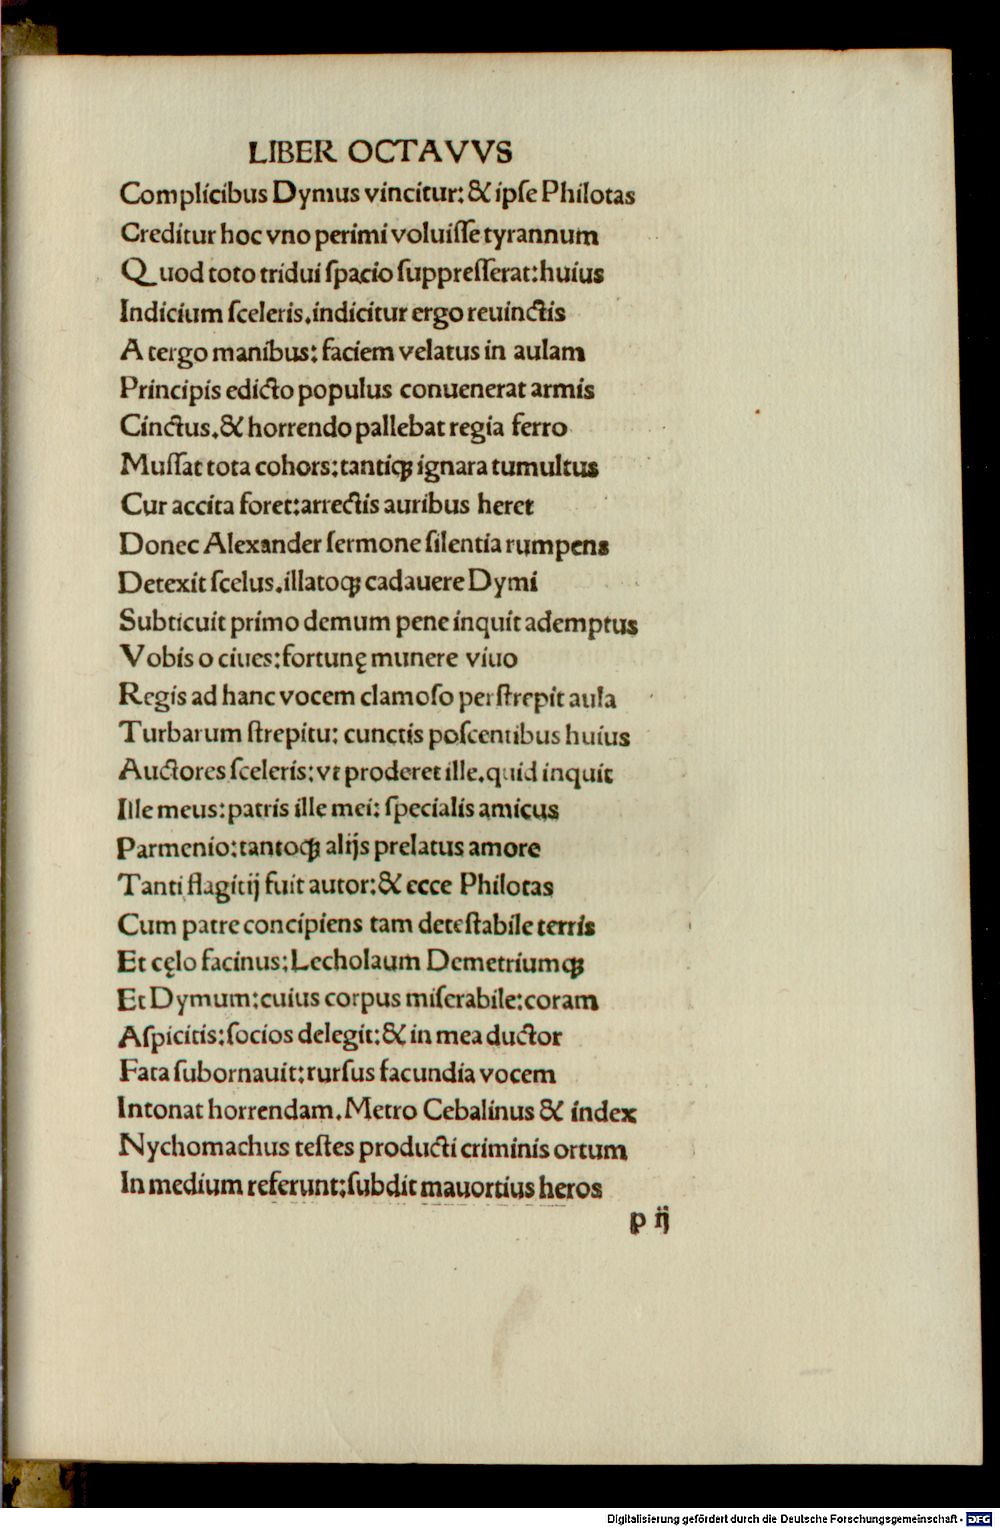 LIBER OCTAVVS
Complicibus Dymus vincitur: & ipſe Philotas
Creditur hoc vno perimi voluiſſe tyrannum
Quod toto tridui ſpacio ſuppreſſerat: huius
Indicium ſceleris. indicitur ergo reuinctis
A tergo manibus: faciem velatus in aulam
Principis edicto populus conuenerat armis
Cinctus. & horrendo pallebat regia ferro
Muſſat tota cohors: tantiqꝫ ignara tumultus
Cur accita foret: arrectis auribus heret
Donec Alexander ſermone ſilentia rumpens
Detexit ſcelus. illatoqꝫ cadauere Dymi
Subticuit primo demum pene inquit ademptus
Vobis o ciues: fortunę munere viuo
Regis ad hanc vocem clamoſo perſtrepit aula
Turbarum ſtrepitu: cunctis poſcentibus huius
Auctores ſceleris: vt proderet ille. quid inquit
Ille meus: patris ille mei: ſpecialis amicus
Parmenio: tantoqꝫ alijs prelatus amore
Tanti flagitij fuit autor: & ecce Philotas
Cum patre concipiens tam deteſtabile terris
Et cęlo facinus: Lecholaum Demetriumqꝫ
Et Dymum: cuius corpus miſerabile: coram
Aſpicitis: ſocios delegit: & in mea ductor
Fata ſubornauit: rurſus facundia vocem
Intonat horrendam. Metro Cebalinus & index
Nychomachus teſtes producti criminis ortum
In medium referunt: ſubdit mauortius heros
p ij
Digitalisierung gefördert durch die Deutsche Forschungsgemeinschaft - DFG